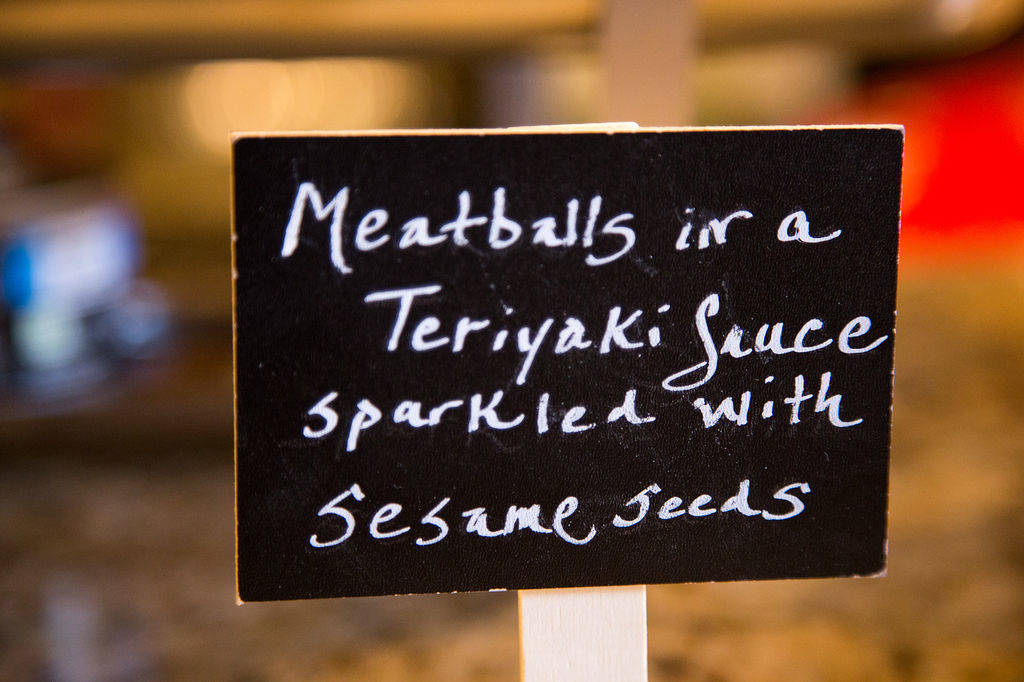 Meatballs in a
Teriyaki Sauce
sparkled with
Sesame seeds